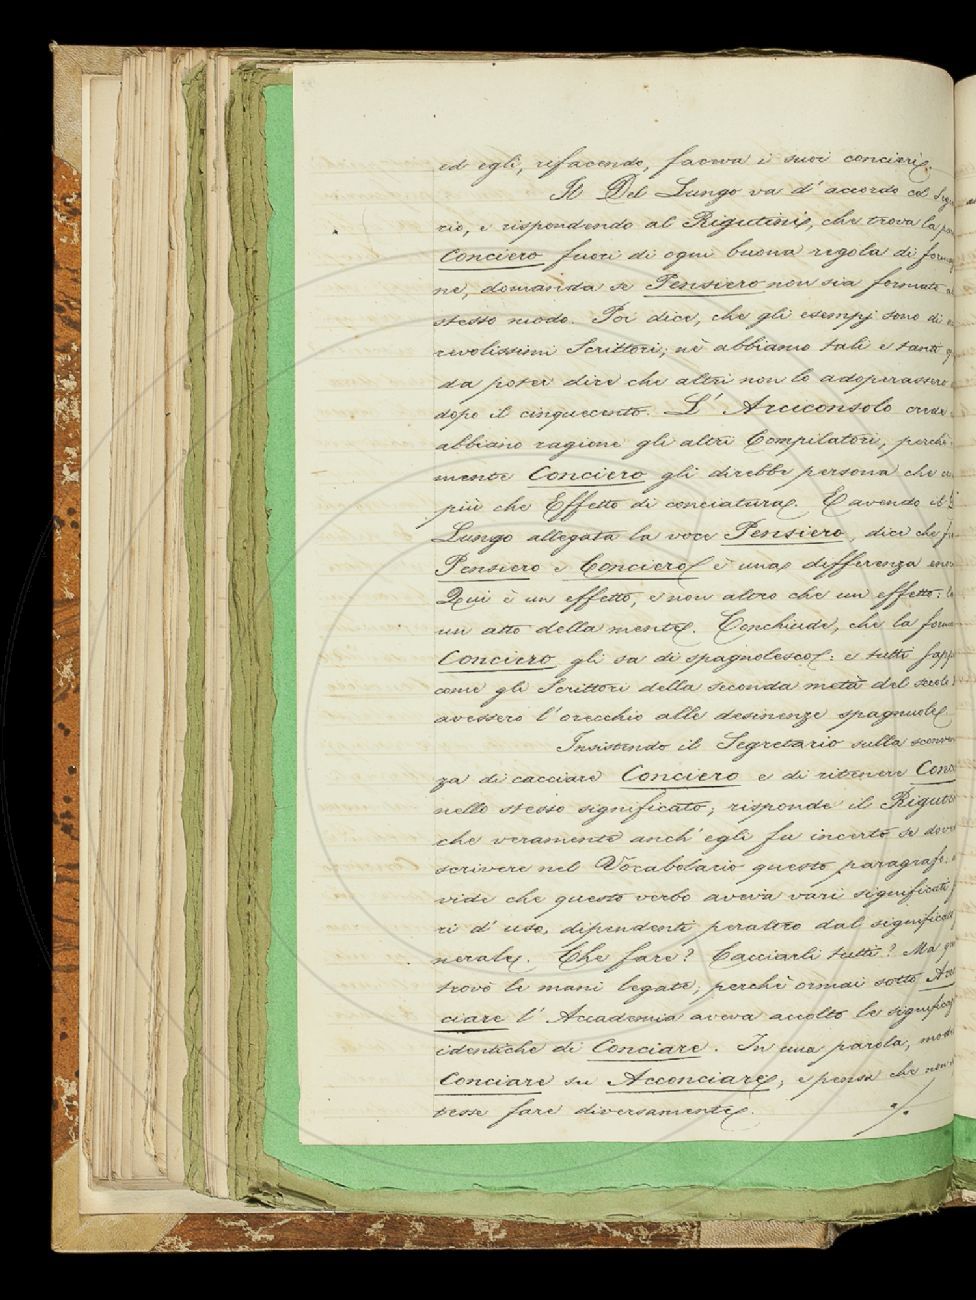 ed egli, rifacendo, faceva i suoi concieri.
Il Del Lungo va d'accordo col
rio, e rispondendo al Rigutini, che trova la
Conciero fuori di ogni buona regola di
ne, domanda se Pensiero non sia formato
stesso modo. Poi dice, che gli esempj sono di
revolissimi Scrittori; nè abbiamo tali e tanti
da poter dire che altri non lo adoperassero
dopo il cinquecento. L'Arciconsolo crede
abbiano ragione gli altri Compilatori, perchè
mente Conciero gli direbbe persona che
più che Effetto di conciatura. E avendo il
Lungo allegata la voce Pensiero, dice che
Pensiero e Conciero è una differenza
Qui è un effetto, e non altro che un effetto:
un atto della mente. Conchiude, che la
Conciero gli sa di spagnolesco: e tutti
come gli Scrittori della seconda metà del secolo
avessero l'orecchio alle desinenze spagnuole.
Insistendo il Segretario sulla
za di cacciare Conciero e di ritenere
nello stesso significato, risponde il
che veramente anch'egli fu incerto se
scrivere nel Vocabolario questo paragrafo.
vide che questo verbo aveva vari significati
ri d'uso, dipendenti peraltro dal
nerale. Che fare? Cacciarli tutti? Ma
trovò le mani legate, perchè ormai sotto
ciare l'Accademia aveva accolto le
identiche di Conciare. In una parola,
Conciare su Acconciare, e pensa che non
tesse fare diversamente. ./.